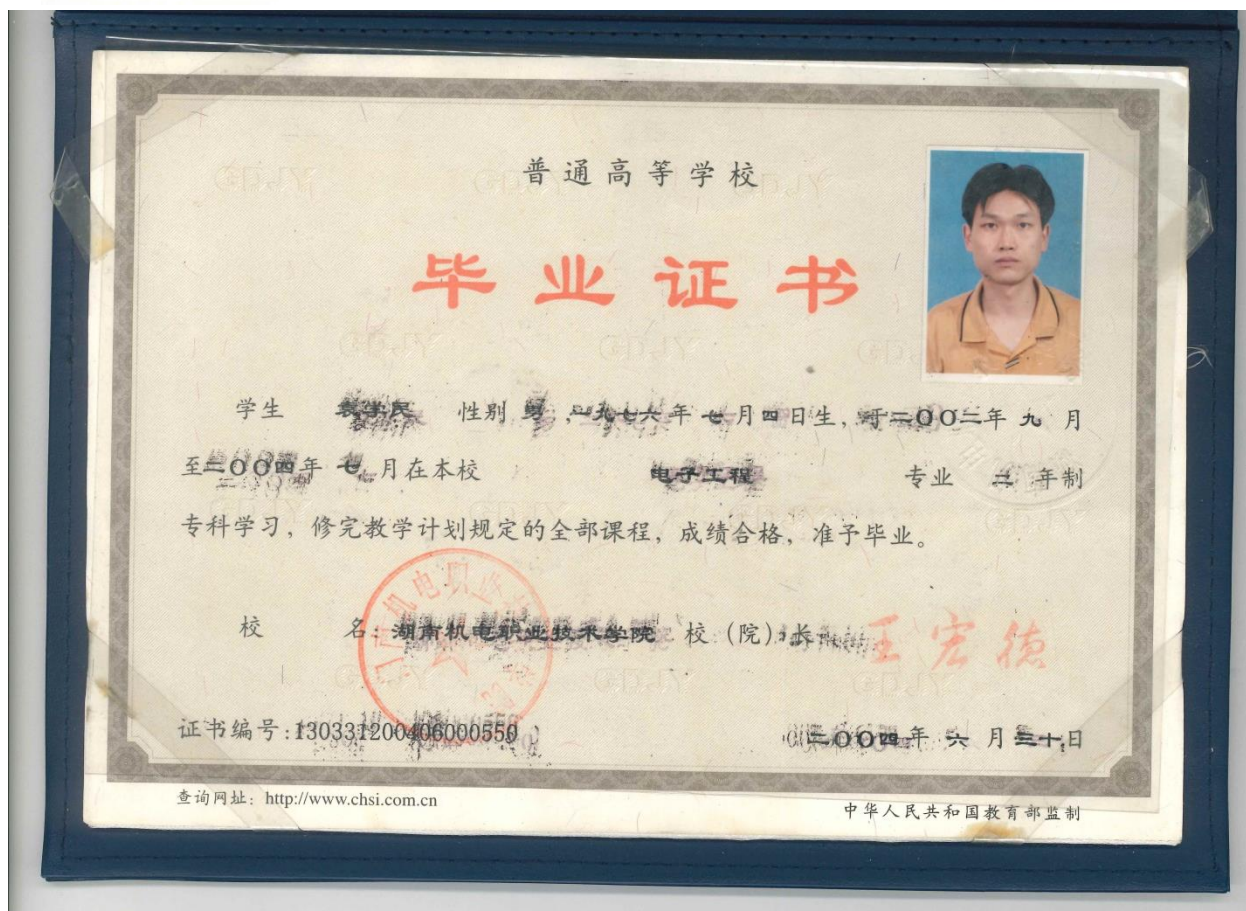 普通高等学校
毕业证书
学生 袁学民 性别 男，一九七六年七月四日生，于二〇〇二年九月
至二〇〇四年七月在本校 电子工程 专业 二 年制
专科学习，修完教学计划规定的全部课程，成绩合格，准予毕业。
校 名：湖南机电职业技术学院 校（院）长：王宏德
证书编号：130331200406000550 二〇〇四年六月三十日
查询网址：http://www.chsi.com.cn
中华人民共和国教育部监制